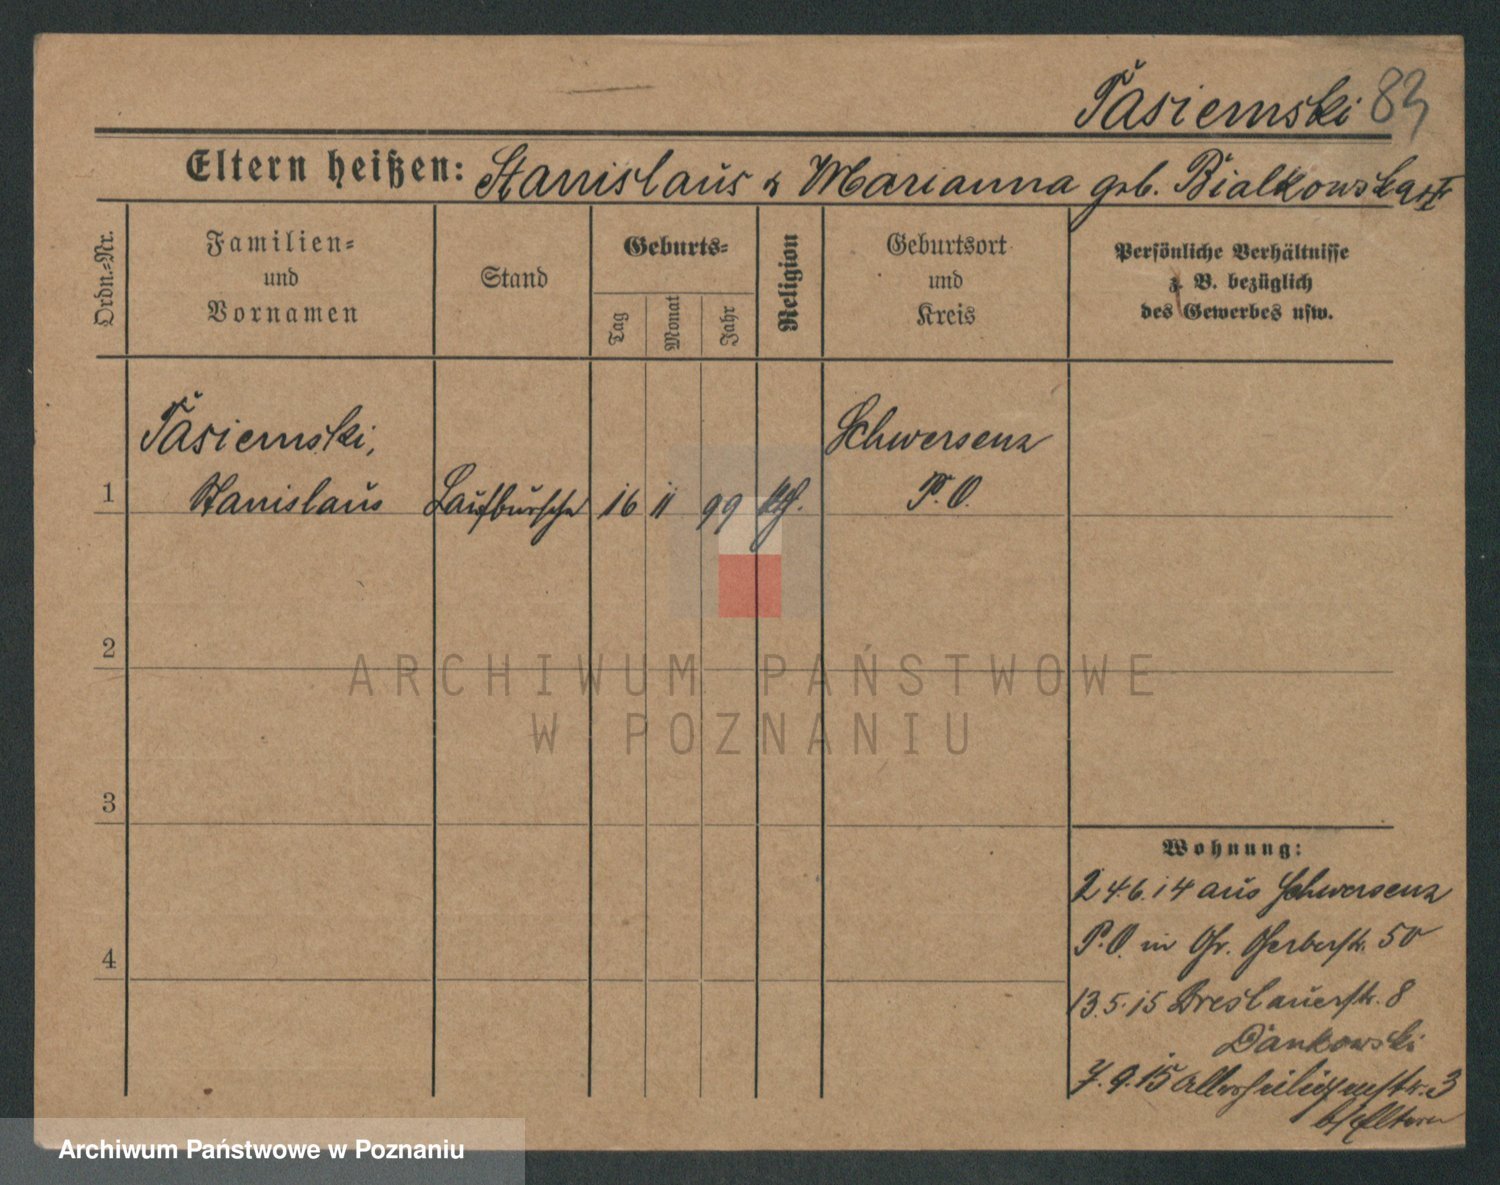 Tasiemski 83
Eltern heißen: Stanislaus & Marianna geb. Bialkowska
Ordn.-Nr.
Familien-
und
Vornamen
Stand
Geburts-
Tag
Monat
Jahr
Religion
Geburtsort
und
Kreis
Persönliche Verhältnisse
z. B. bezüglich
des Gewerbes usw.
Tasiemski,
Schwersenz
1 Stanislaus Laufbursche 16 11 99 kth. P. O.
2
3
4
Wohnung:
24.6.14 aus Schwersenz
P.O. in Gr. Gerberstr. 50
13.5.15 Breslauerstr. 8
Dankowski
7.9.15 Allerheiligenstr. 3
b/Eltern
ARCHIWUM PAŃSTWOWE
W POZNANIU
Archiwum Państwowe w Poznaniu